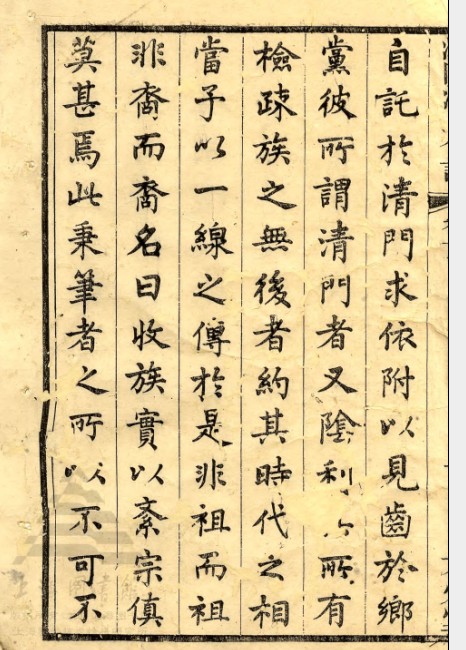 自託於清門求依附以見齒於鄉
黨彼所謂清門者又陰利所有
檢疎族之無後者約其時代之相
當子以一線之傳於是非祖而祖
非裔而裔名曰收族實以紊宗傎
莫甚焉此秉筆者之所以不可不